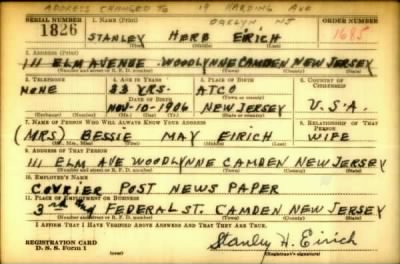 ADDRESS CHANGED TO 19 HARDING AVE
OAKLYN NJ
SERIAL NUMBER 1. NAME (Print) ORDER NUMBER
1826 STANLEY HERB EIRICH 1685
(First) (Middle) (Last)
2. ADDRESS (Print)
111 ELM AVENUE WOODLYNNE CAMDEN NEW JERSEY
(Number and street or R. F. D. number) (Town) (County) (State)
3. TELEPHONE 4. AGE IN YEARS 5. PLACE OF BIRTH 6. COUNTRY OF CITIZENSHIP
NONE 33 YRS. ATCO
DATE OF BIRTH (Town or county)
NOV-10-1906 NEW JERSEY U.S.A.
(Exchange) (Number) (Mo.) (Day) (Yr.) (State or country)
7. NAME OF PERSON WHO WILL ALWAYS KNOW YOUR ADDRESS 8. RELATIONSHIP OF THAT PERSON
(MRS) BESSIE MAY EIRICH WIFE
(Mr., Mrs., Miss) (First) (Middle) (Last)
9. ADDRESS OF THAT PERSON
111 ELM AVE WOODLYNNE CAMDEN NEW JERSEY
(Number and street or R. F. D. number) (Town) (County) (State)
10. EMPLOYER'S NAME
COURIER POST NEWS PAPER
11. PLACE OF EMPLOYMENT OR BUSINESS
3rd and FEDERAL ST. CAMDEN NEW JERSEY
(Number and street or R. F. D. number) (Town) (County) (State)
I AFFIRM THAT I HAVE VERIFIED ABOVE ANSWERS AND THAT THEY ARE TRUE.
REGISTRATION CARD
D. S. S. Form 1
Stanley H. Eirich
(Registrant's signature)